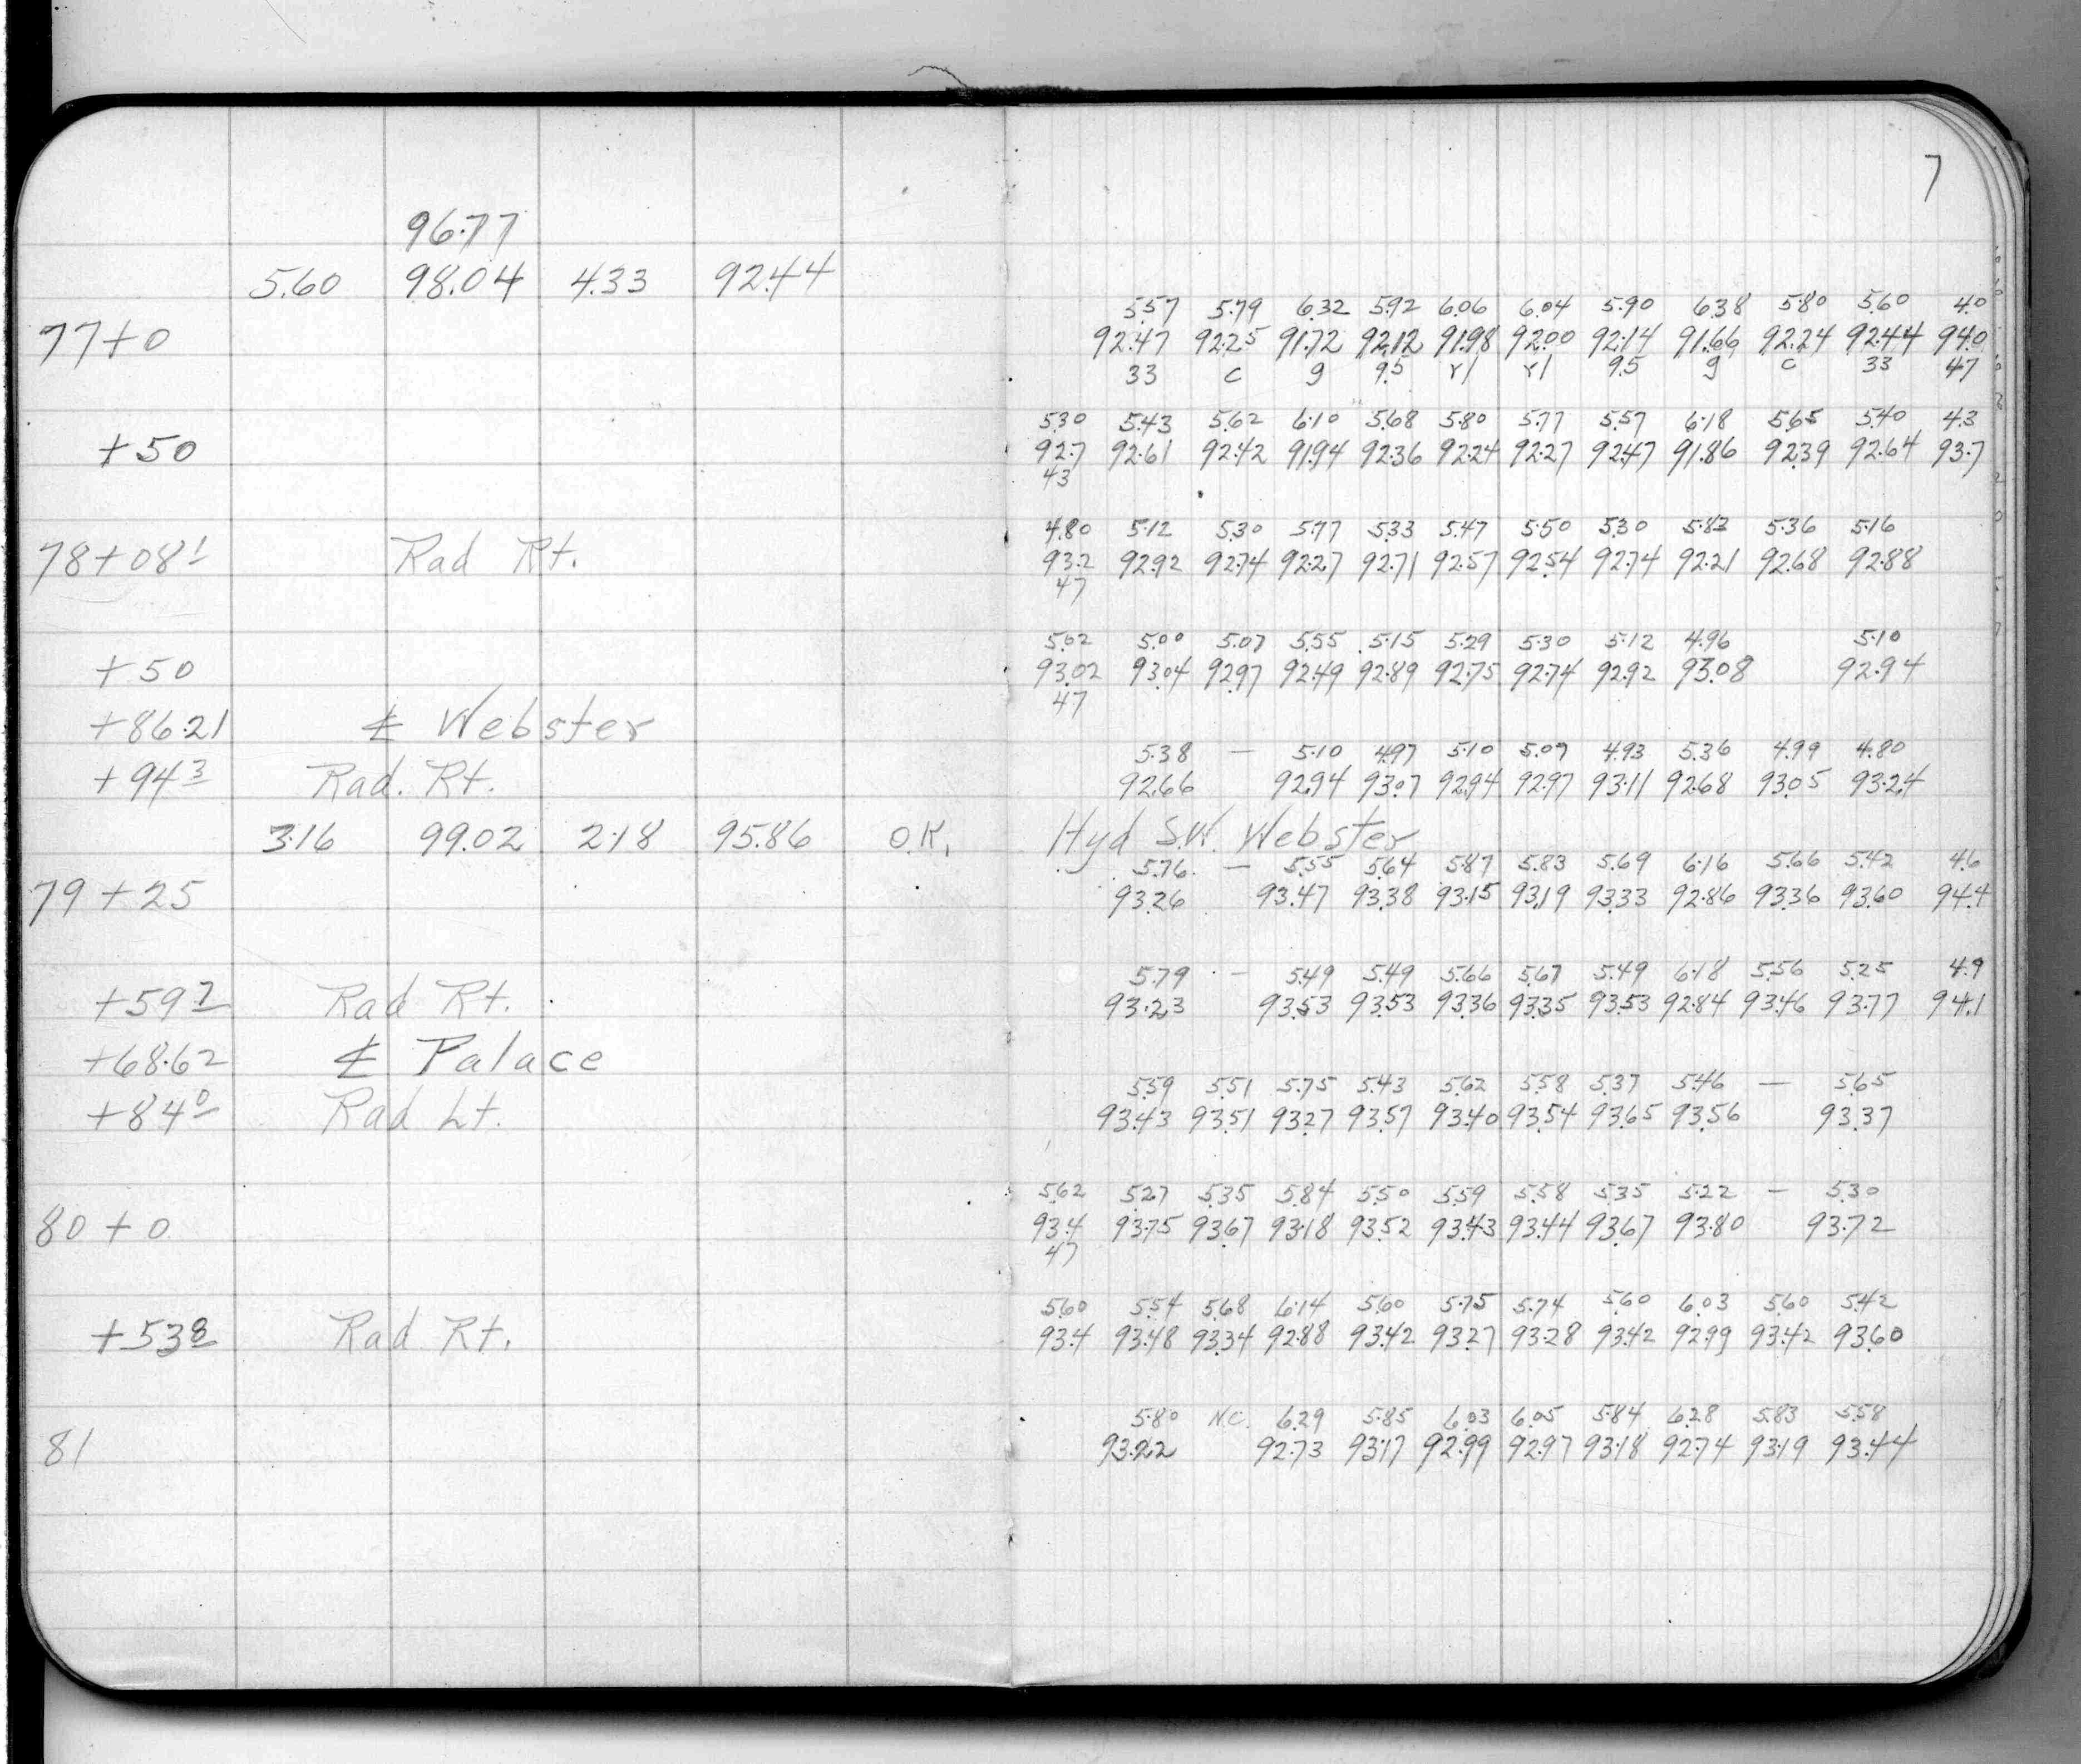 7
96.77
5.60 98.04 4.33 92.44
5.57 5.79 6.32 5.92 6.06 6.04 5.90 6.38 5.80 5.60 4.0
77+0 92.47 92.25 91.72 92.12 91.98 92.00 92.14 91.66 92.24 92.44 94.0
33 c g 9.5 r1 r1 9.5 g c 33 47
5.30 5.43 5.62 6.10 5.68 5.80 5.77 5.57 6.18 5.65 5.40 4.3
+50 92.7 92.61 92.42 91.94 92.36 92.24 92.27 92.47 91.86 92.39 92.64 93.7
43
4.80 5.12 5.30 5.77 5.33 5.47 5.50 5.30 5.83 5.36 5.16
78+08.1 Rad Rt. 93.2 92.92 92.74 92.27 92.71 92.57 92.54 92.74 92.21 92.68 92.88
47
5.02 5.00 5.07 5.55 5.15 5.29 5.30 5.12 4.96 5.10
+50 93.02 93.04 92.97 92.49 92.89 92.75 92.74 92.92 93.08 92.94
47
+86.21 ℄ Webster
5.38 — 5.10 4.97 5.10 5.07 4.93 5.36 4.99 4.80
+94.3 Rad. Rt. 92.66 92.94 93.07 92.94 92.97 93.11 92.68 93.05 93.24
3.16 99.02 2.18 95.86 O.K. Hyd S.W. Webster
5.76 — 5.55 5.64 5.87 5.83 5.69 6.16 5.66 5.42 4.6
79+25 93.26 93.47 93.38 93.15 93.19 93.33 92.86 93.36 93.60 94.4
5.79 — 5.49 5.49 5.66 5.67 5.49 6.18 5.56 5.25 4.9
+59.7 Rad Rt. 93.23 93.53 93.53 93.36 93.35 93.53 92.84 93.46 93.77 94.1
+68.62 ℄ Palace
5.59 5.51 5.75 5.43 5.62 5.58 5.37 5.46 — 5.65
+84.0 Rad Lt. 93.43 93.51 93.27 93.57 93.40 93.54 93.65 93.56 93.37
5.62 5.27 5.35 5.84 5.50 5.59 5.58 5.35 5.22 — 5.30
80+0 93.4 93.75 93.67 93.18 93.52 93.43 93.44 93.67 93.80 93.72
47
5.60 5.54 5.68 6.14 5.60 5.75 5.74 5.60 6.03 5.60 5.42
+53.8 Rad Rt. 93.4 93.48 93.34 92.88 93.42 93.27 93.28 93.42 92.99 93.42 93.60
5.80 N.C. 6.29 5.85 6.03 6.05 5.84 6.28 5.83 5.58
81 93.22 92.73 93.17 92.99 92.97 93.18 92.74 93.19 93.44